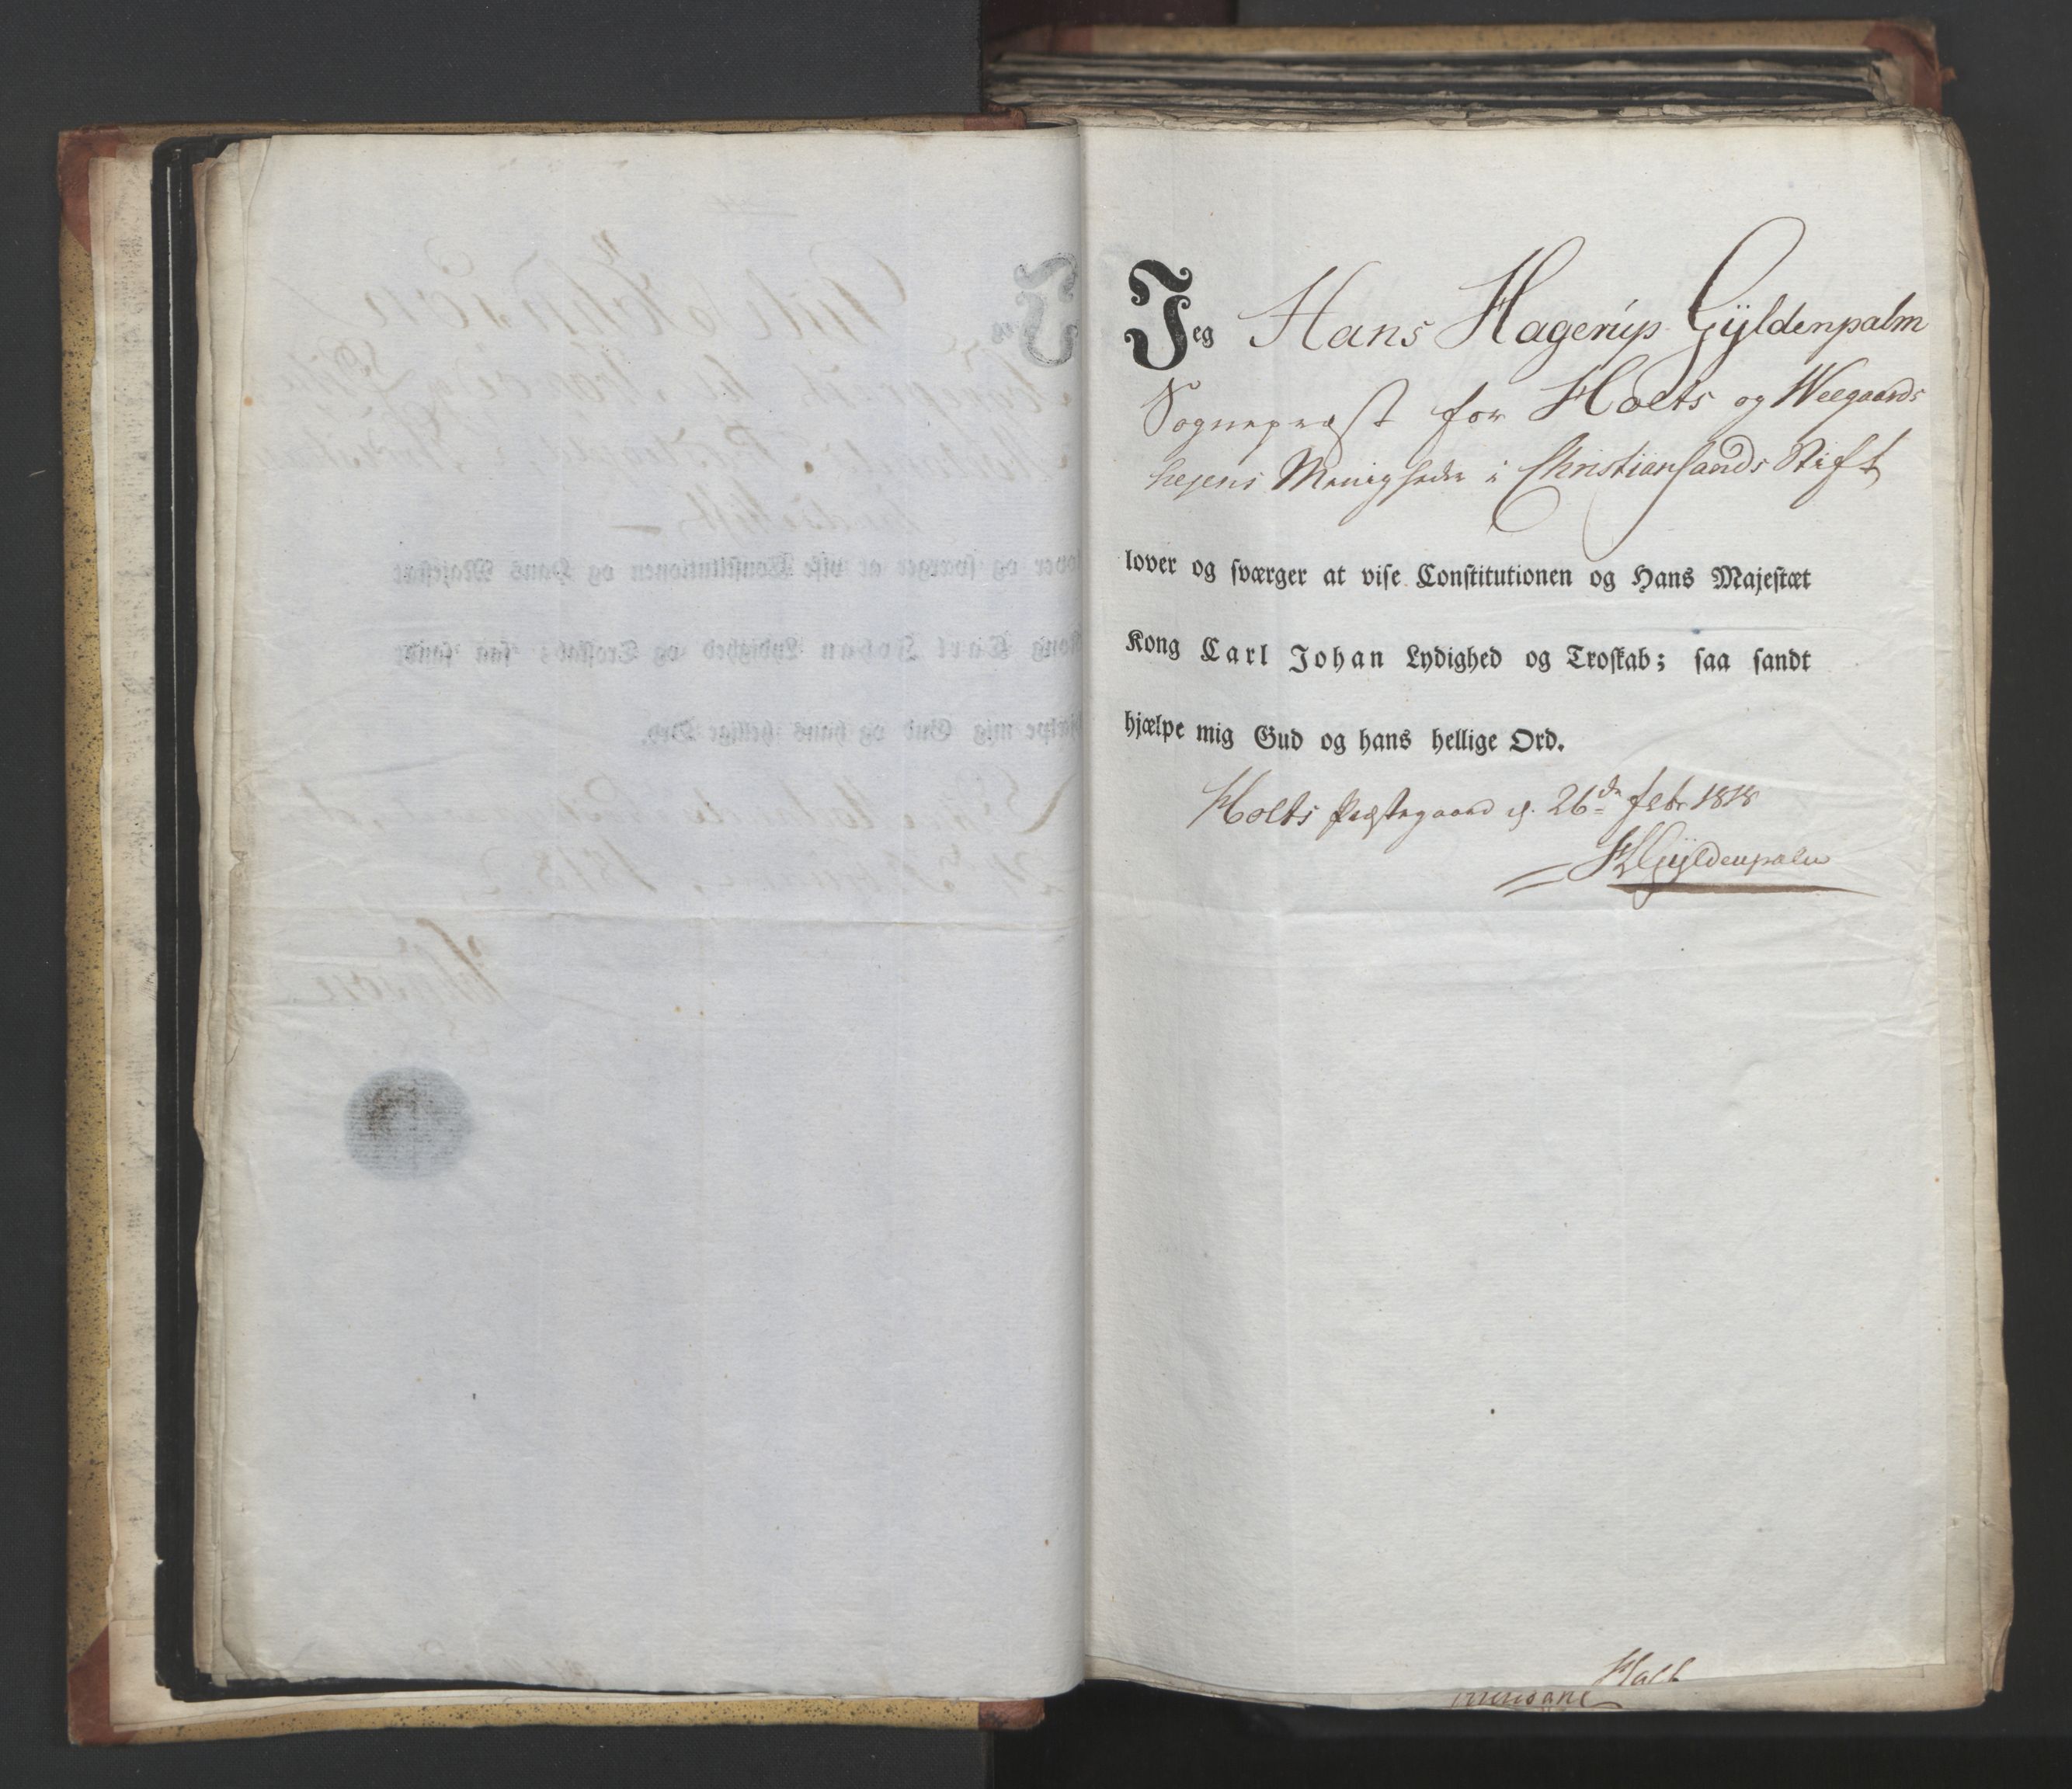 Jeg Hans Hagerup Gÿldenpalm
Sognepræst for Holts og Weegaards
hejens Menigheder i Christiansands Stift
lover og sværger at vise Constitutionen og Hans Majestæt
Kong Carl Johan Lydighed og Troskab; saa sandt
hjælpe mig Gud og hans hellige Ord.
Holts Præstegaard d. 26de Febr 1818
HHGÿldenpalm
Holt